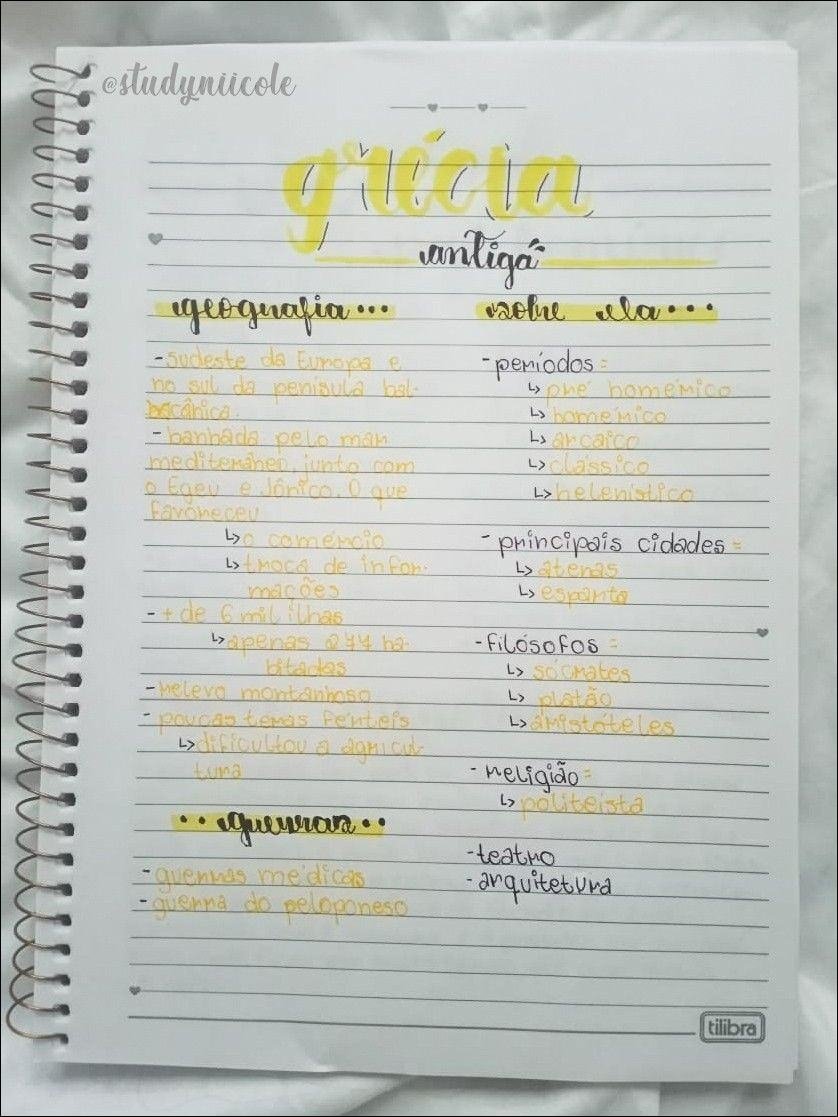 @studyniicole
grécia
antiga
geografia...
- sudeste da Europa e
no sul da penisula bal-
cânica.
- banhada pelo mar
mediterrâneo, junto com
o Egeu e Jônico. O que
favoreceu
↳ o comércio
↳ troca de infor-
mações
- + de 6 mil ilhas
↳ apenas 277 ha-
bitadas
- relevo montanhoso
- poucas terras ferteis
↳ dificultou a agricul-
tura
..guerras..
- guerras médicas
- guerra do peloponeso
sobre ela...
- períodos =
↳ pré homérico
↳ homérico
↳ arcaico
↳ clássico
↳ helenístico
- principais cidades =
↳ atenas
↳ esparta
- filósofos =
↳ sócrates
↳ platão
↳ aristóteles
- religião =
↳ politeísta
- teatro
- arquitetura
tilibra